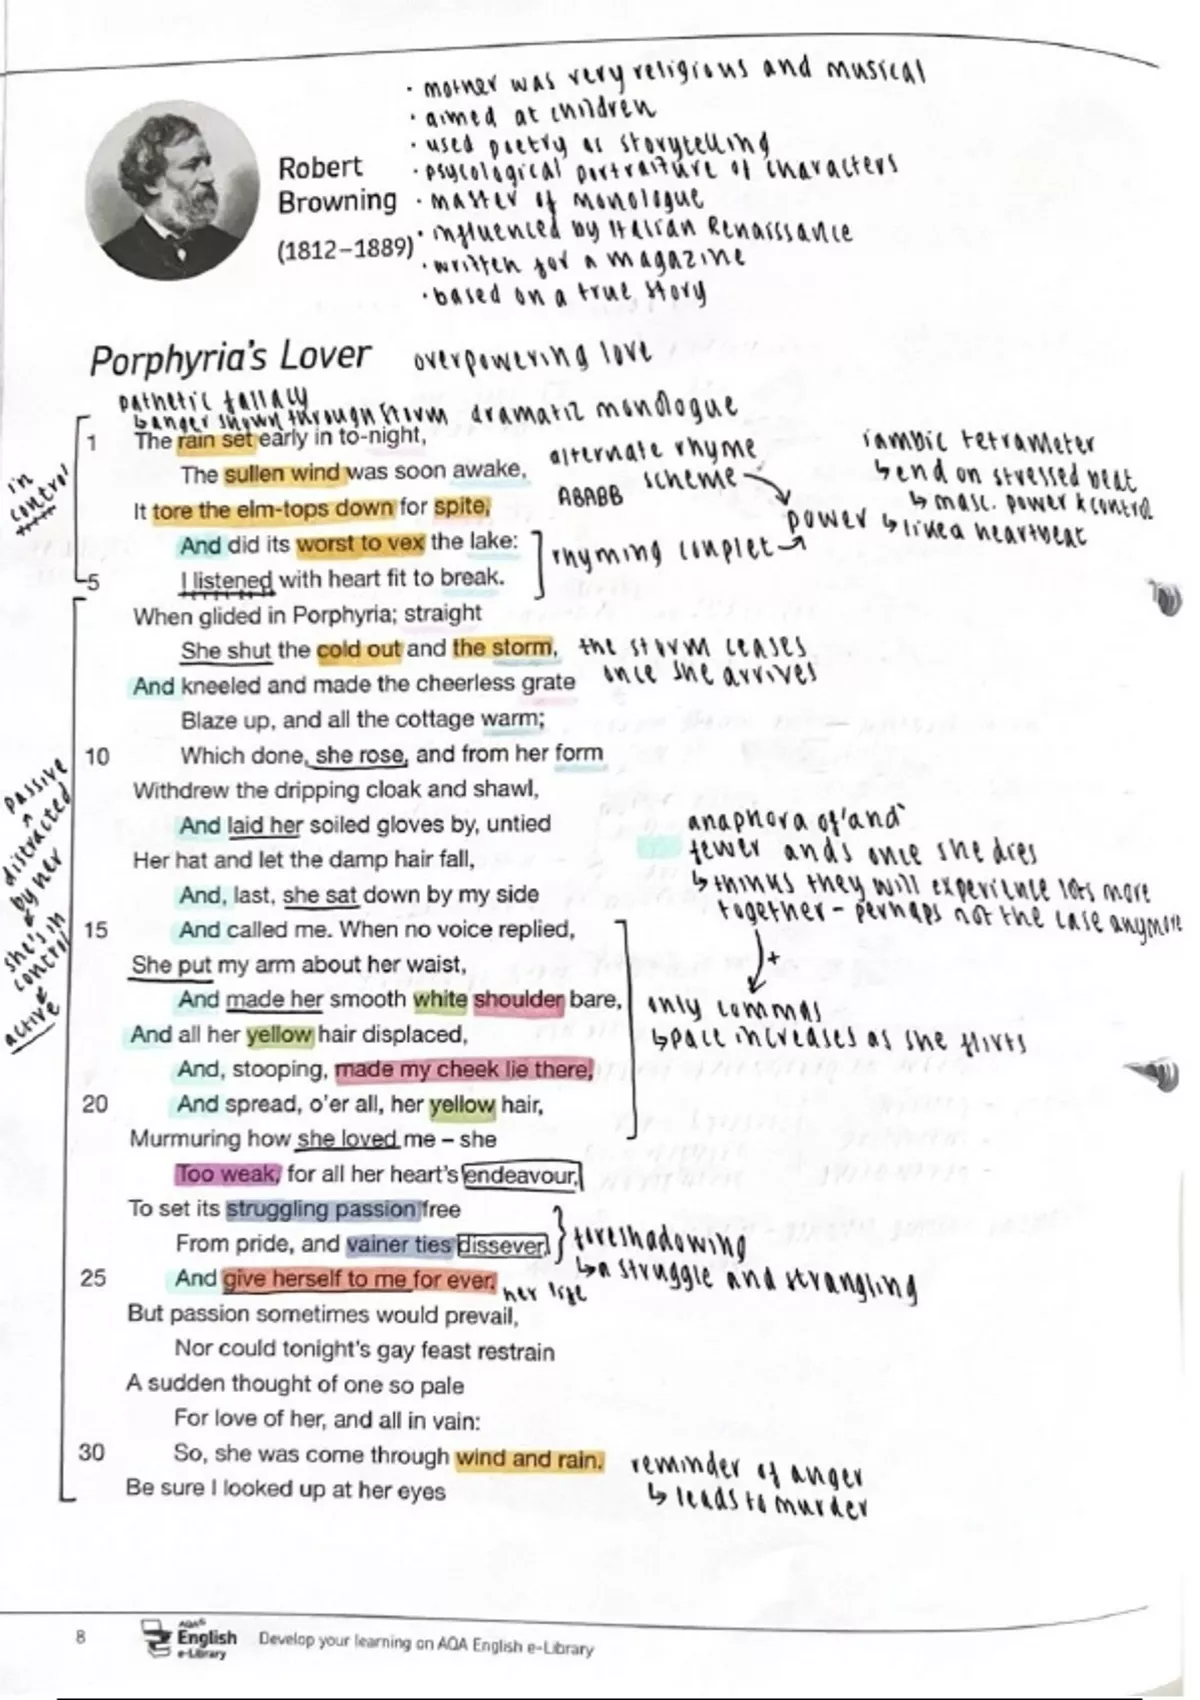 · mother was very religious and musical
· aimed at children
· used poetry as storytelling
· psycological portraiture of characters
· master of monologue
· influenced by Italian Renaissance
· written for a magazine
· based on a true story
Robert
Browning
(1812–1889)
Porphyria's Lover
overpowering love
pathetic fallacy
↳ anger shown through storm
dramatic monologue
in control
1 The rain set early in to-night,
The sullen wind was soon awake,
It tore the elm-tops down for spite,
And did its worst to vex the lake:
5 I listened with heart fit to break.
alternate rhyme
scheme
ABABB
rhyming couplet
power
iambic tetrameter
↳ end on stressed beat
↳ masc. power & control
↳ like a heartbeat
When glided in Porphyria; straight
She shut the cold out and the storm,
the storm ceases
once she arrives
And kneeled and made the cheerless grate
Blaze up, and all the cottage warm;
10 Which done, she rose, and from her form
Withdrew the dripping cloak and shawl,
And laid her soiled gloves by, untied
Her hat and let the damp hair fall,
And, last, she sat down by my side
15 And called me. When no voice replied,
She put my arm about her waist,
And made her smooth white shoulder bare,
And all her yellow hair displaced,
And, stooping, made my cheek lie there,
20 And spread, o'er all, her yellow hair,
passive
distracted
by her
she's in
control
active
anaphora of 'and'
fewer ands once she dies
↳ thinks they will experience lots more
together - perhaps not the case anymore
+
only commas
↳ pace increases as she flirts
Murmuring how she loved me – she
Too weak, for all her heart's endeavour,
To set its struggling passion free
From pride, and vainer ties dissever,
25 And give herself to me for ever.
her life
foreshadowing
↳ a struggle and strangling
But passion sometimes would prevail,
Nor could tonight's gay feast restrain
A sudden thought of one so pale
For love of her, and all in vain:
30 So, she was come through wind and rain.
Be sure I looked up at her eyes
reminder of anger
↳ leads to murder
8
AQA
English
e-Library
Develop your learning on AQA English e-Library